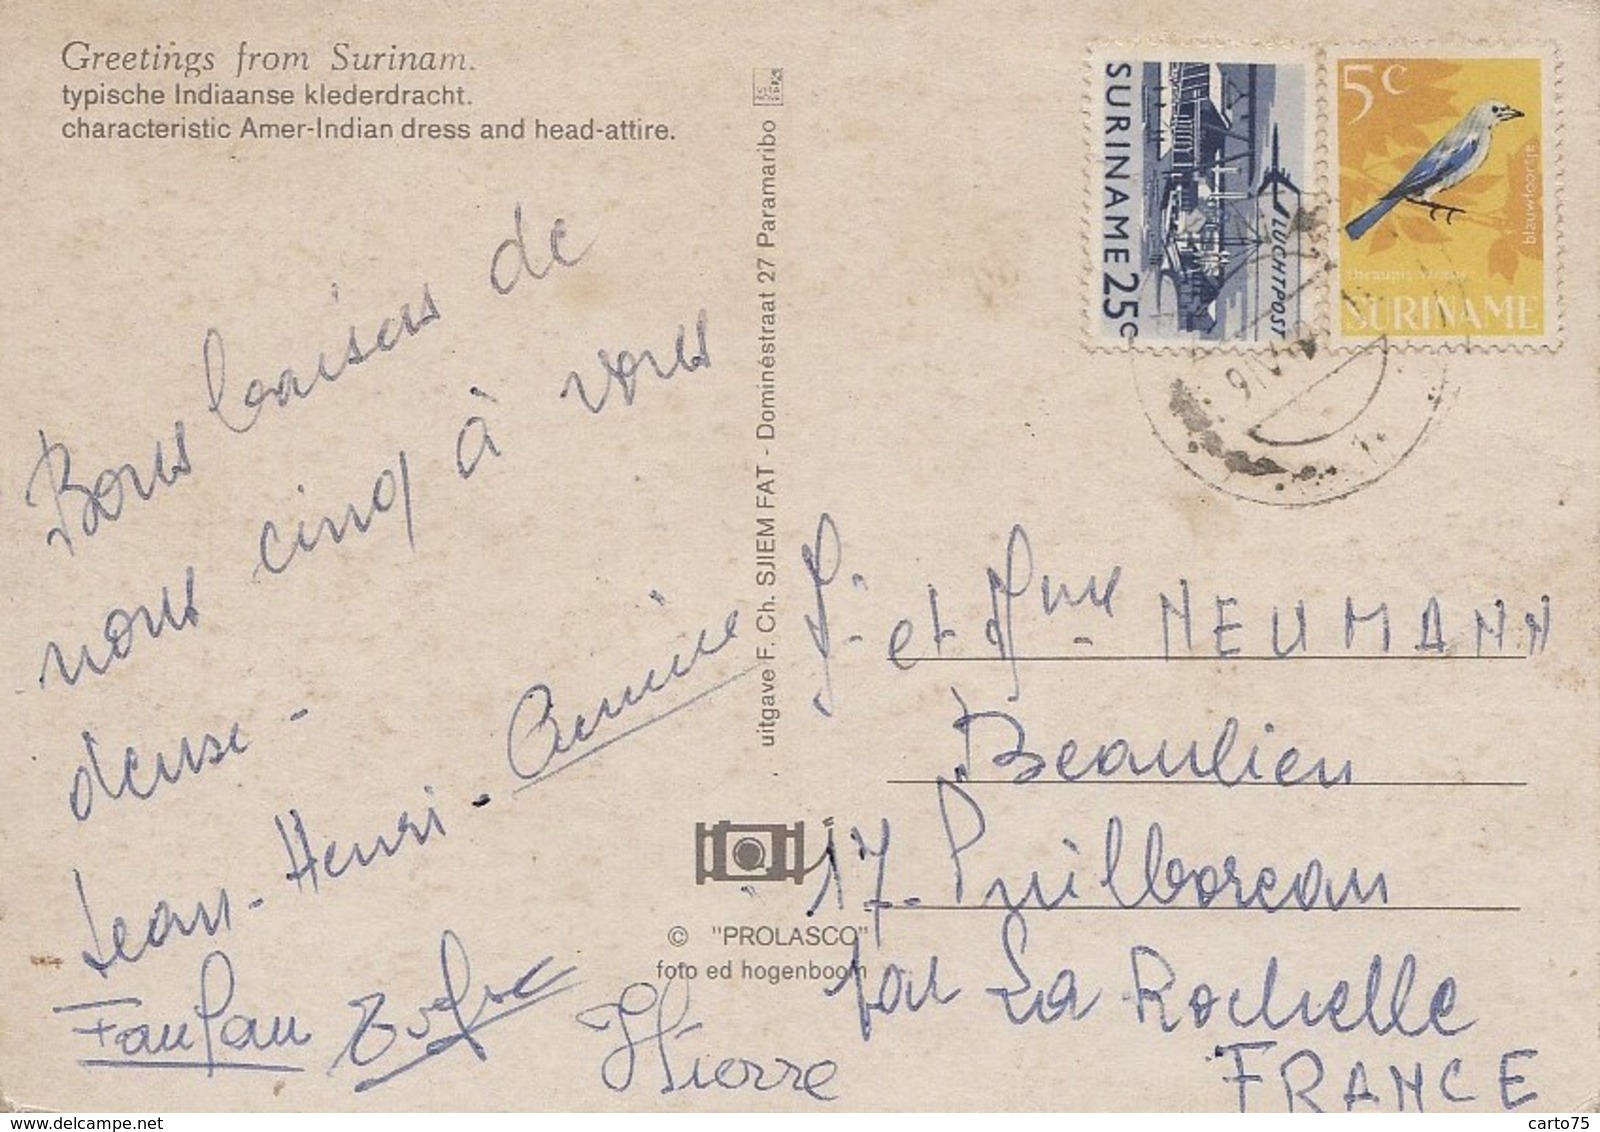 Greetings from Surinam.
typische Indiaanse klederdracht.
characteristic Amer-Indian dress and head-attire.
Bons baisers de
nous cinq à vous
deux -
Jean-Henri - Annie
FanFan
Pierre
uitgave F. Ch. SJIEM FAT - Dominéstraat 27 Paramaribo
© "PROLASCO"
foto ed hogenboom
SURINAME 25c
LUCHTPOST
5c
blauwfoortje
thraupis
SURINAME
9 IV
et Mme NEUMANN
Beaulieu
17 - Puilboreau
par La Rochelle
FRANCE
https://www.delcampe.net
carto75